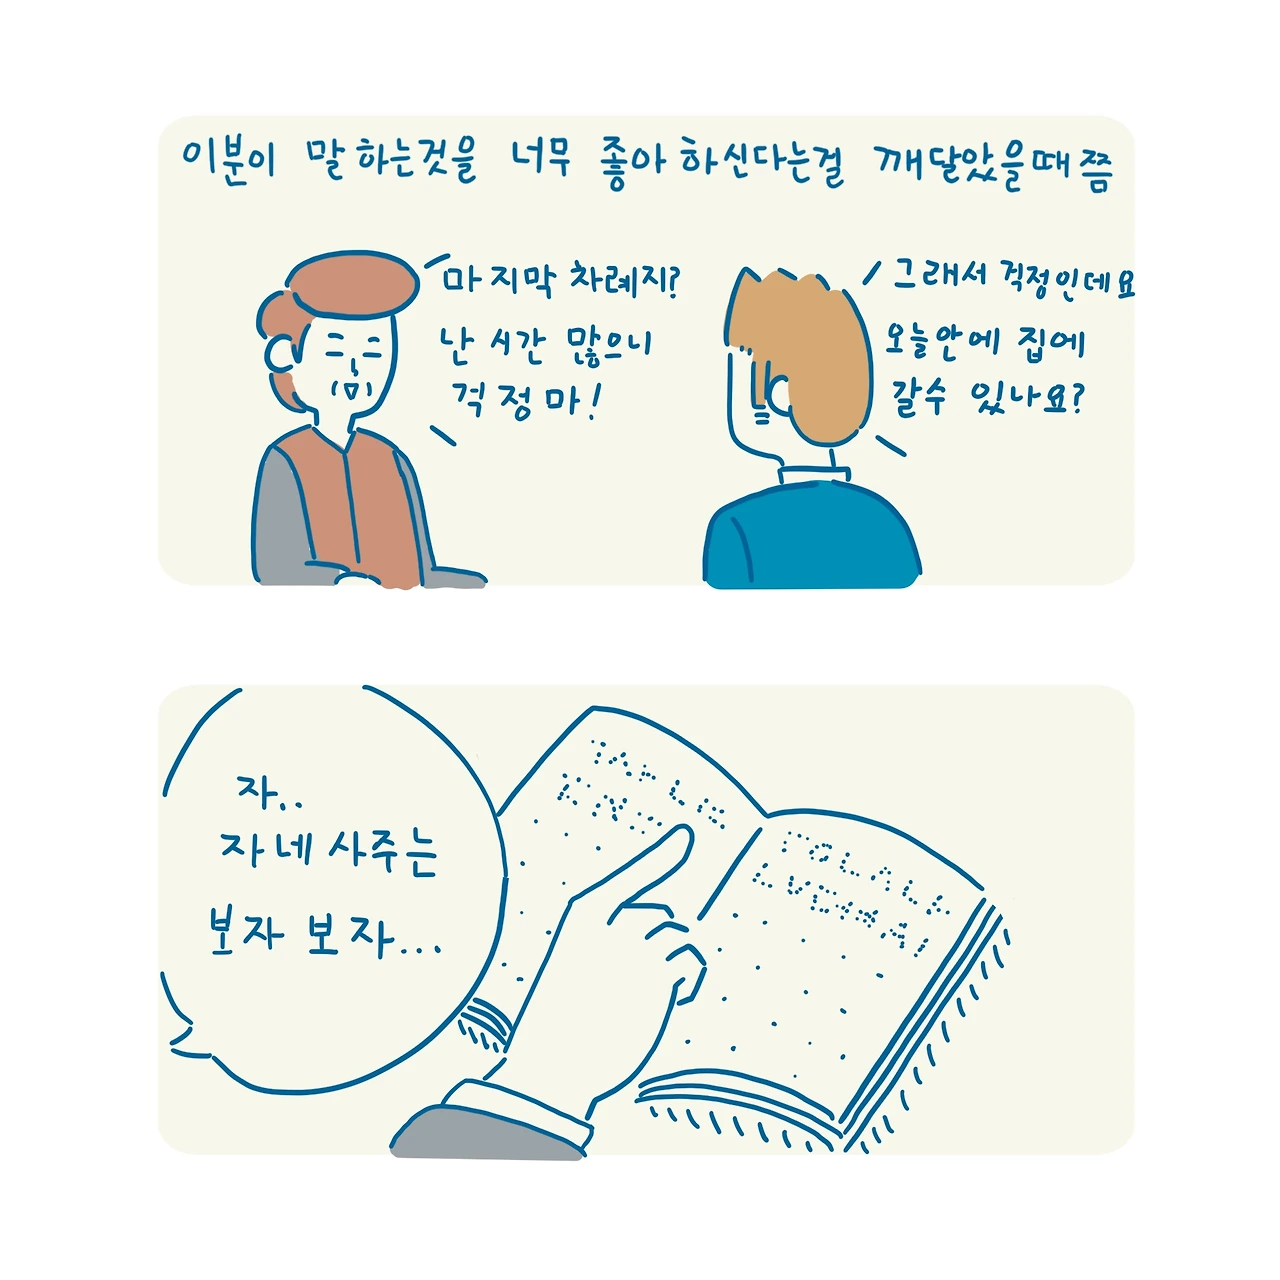 이분이 말하는것을 너무 좋아하신다는걸 깨달았을때쯤
마지막 차례지?
난 시간 많으니
걱정마!
그래서 걱정인데요
오늘안에 집에
갈수 있나요?
자..
자네 사주는
보자 보자...